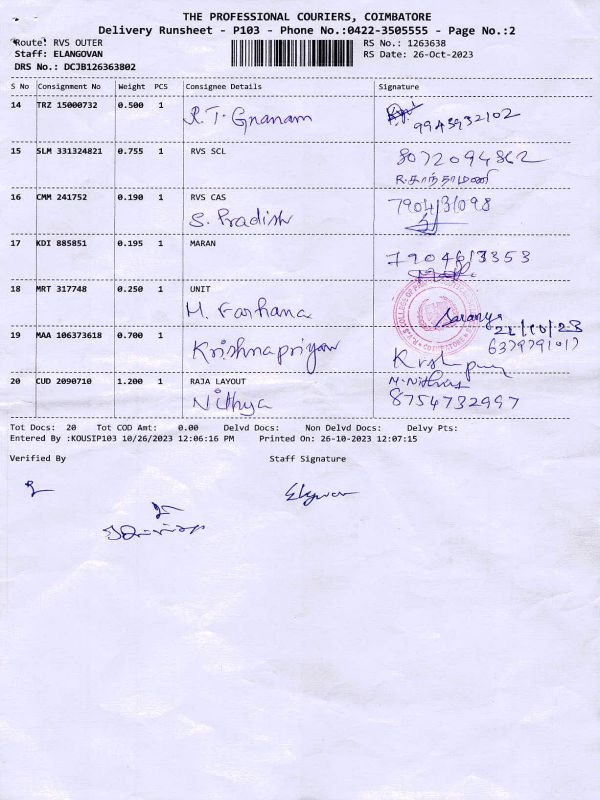 THE PROFESSIONAL COURIERS, COIMBATORE
Delivery Runsheet - P103 - Phone No.:0422-3505555 - Page No.:2
Route: RVS OUTER
RS No.: 1263638
Staff: ELANGOVAN
RS Date: 26-Oct-2023
DRS No.: DCJB126363802
S No Consignment No Weight PCS Consignee Details Signature
14 TRZ 15000732 0.500 1 R.T. Gnanam
9943932102
15 SLM 331324821 0.755 1 RVS SCL 8072094862
R.சாந்தாமணி
16 CMM 241752 0.190 1 RVS CAS
S. Pradish
17 KDI 885851 0.195 1 MARAN 7904613353
18 MRT 317748 0.250 1 UNIT
M. Farhana Saranya
19 MAA 106373618 0.700 1 Krishnapriya
20 CUD 2090710 1.200 1 RAJA LAYOUT
Nithya 8754732997
Tot Docs: 20 Tot COD Amt: 0.00 Delvd Docs: Non Delvd Docs: Delvy Pts:
Entered By :KOUSIP103 10/26/2023 12:06:16 PM Printed On: 26-10-2023 12:07:15
Verified By Staff Signature